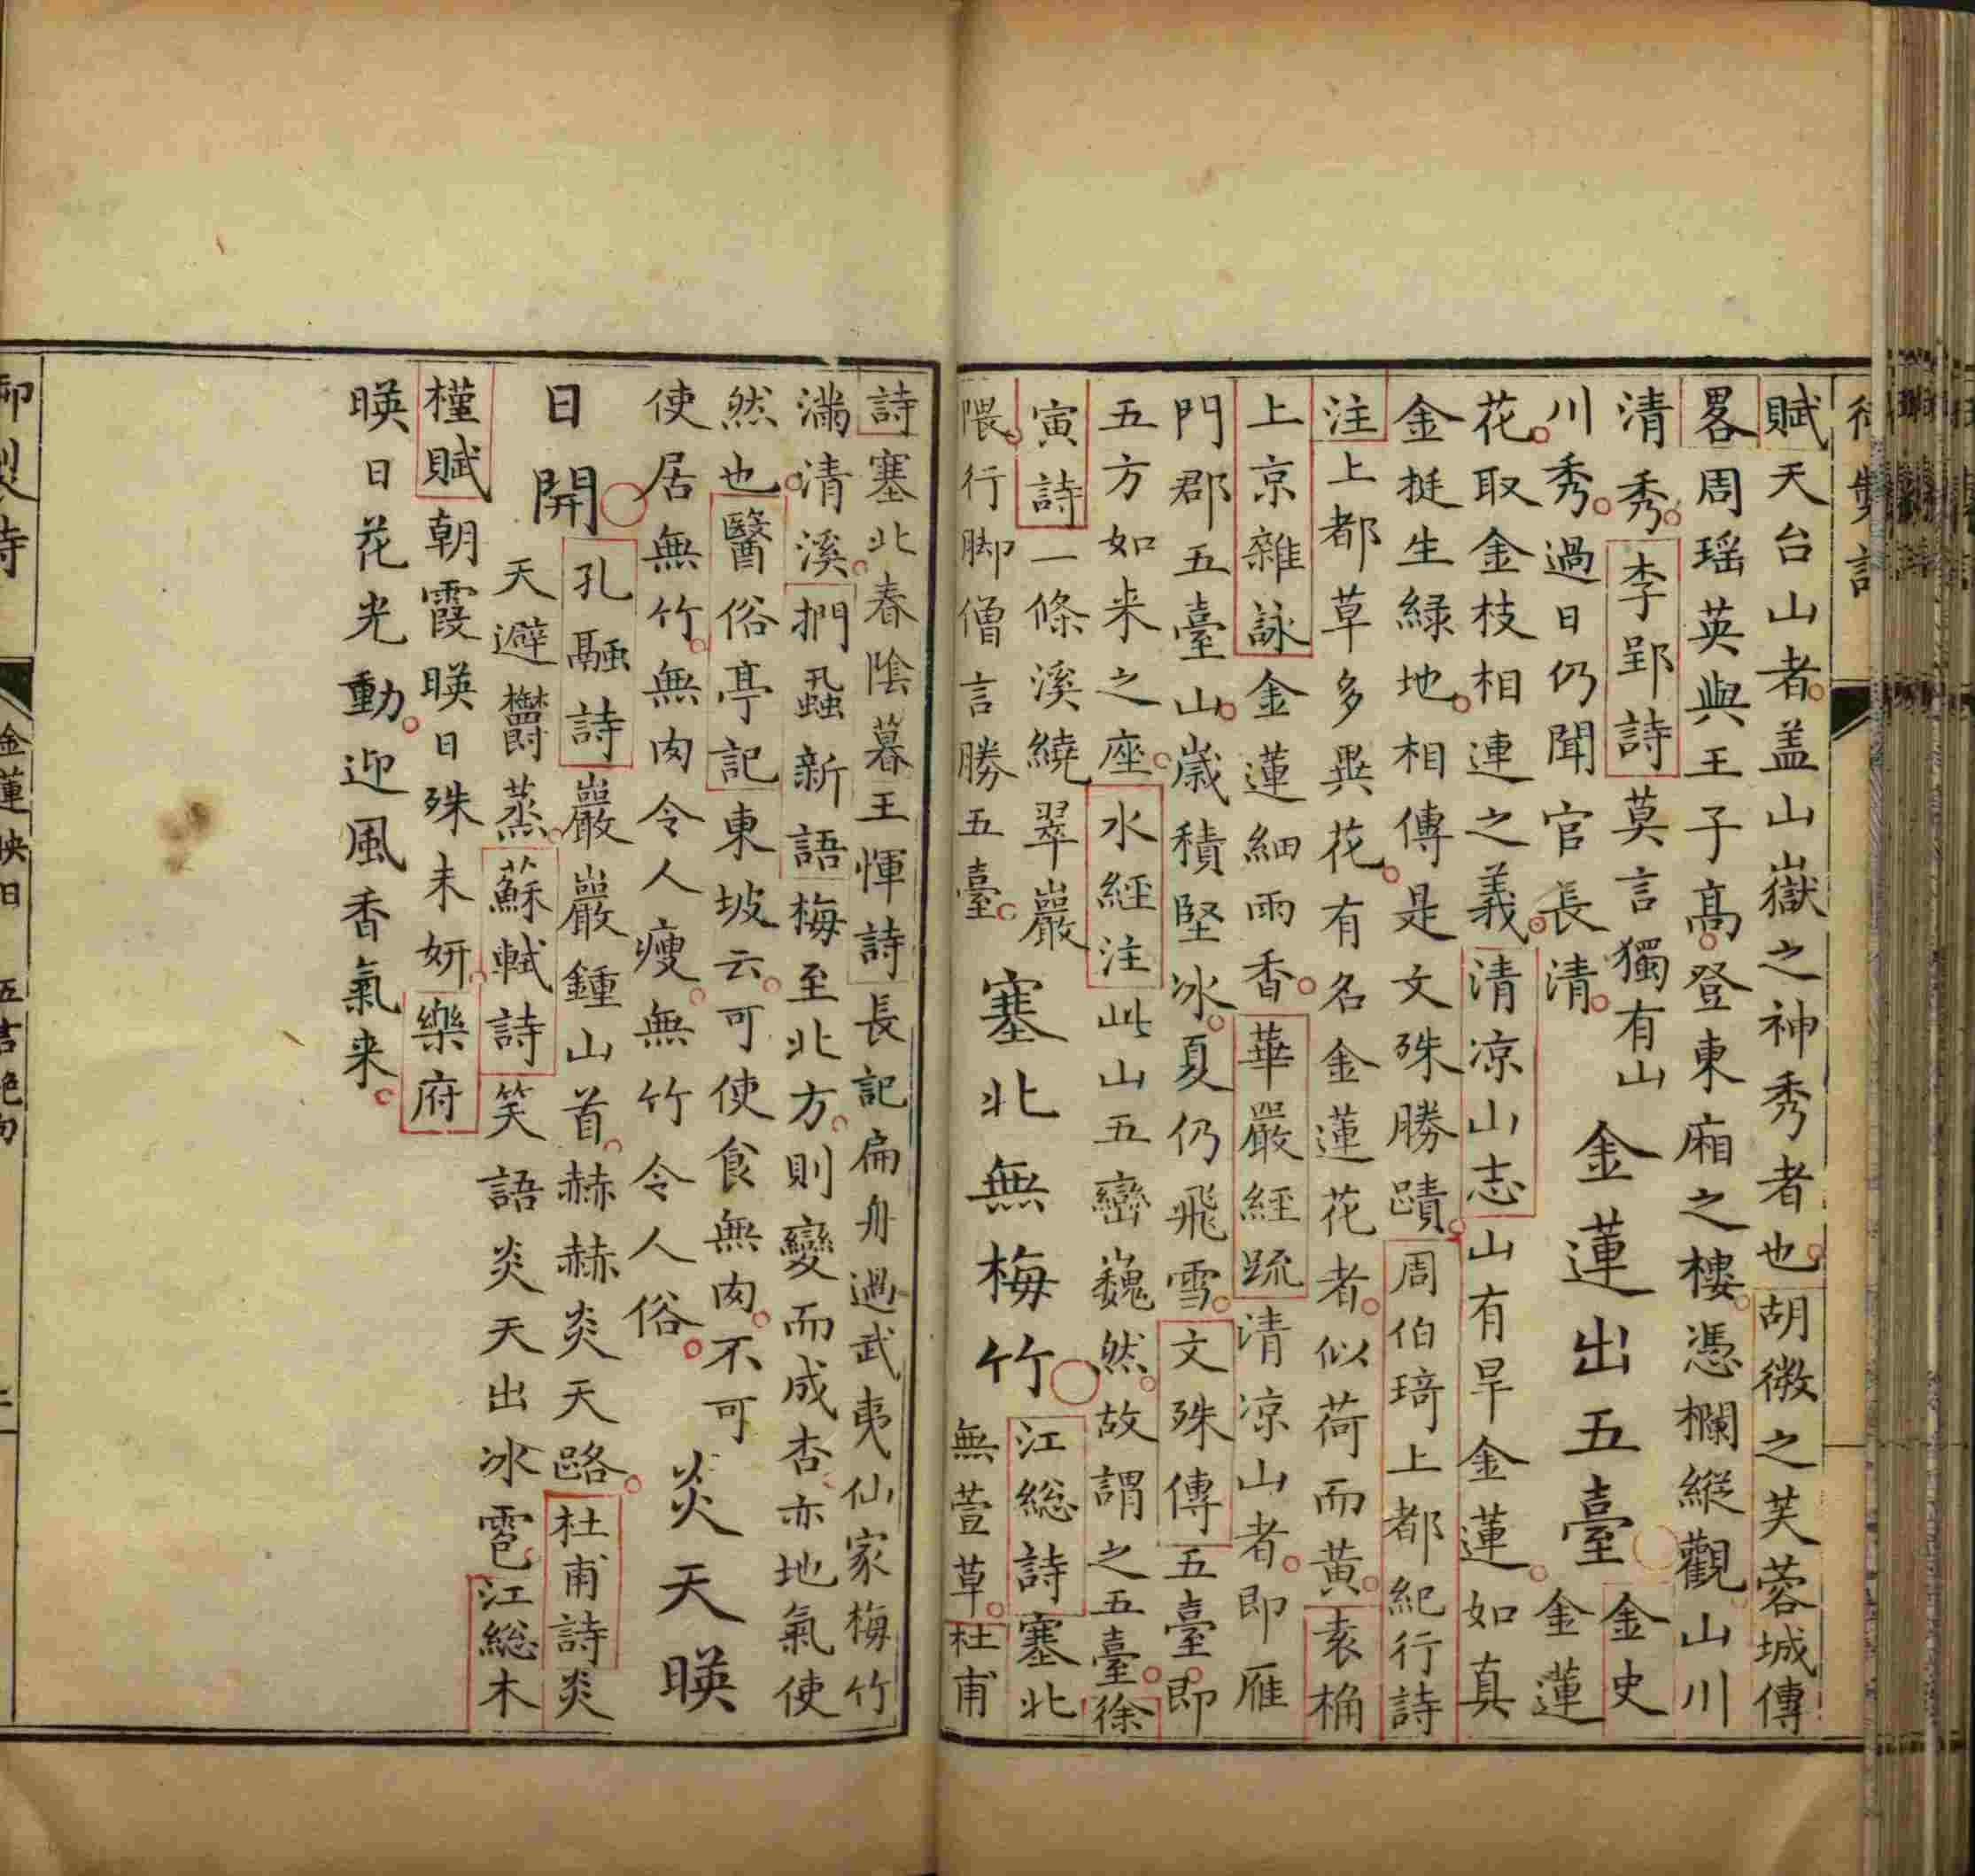 賦天台山者盖山嶽之神秀者也胡微之芙蓉城傳
畧周瑶英與王子高登東廂之樓憑欄縱觀山川
清秀李郢詩莫言獨有山
川秀過日仍聞官長清
金蓮出五臺
金史
金蓮
花取金枝相連之義清凉山志山有旱金蓮如真
金挺生緑地相傳是文殊勝蹟周伯琦上都紀行詩
注上都草多異花有名金蓮花者似荷而黄袁桷
上京雜詠金蓮細雨香華嚴經疏清凉山者即雁
門郡五臺山歲積堅冰夏仍飛雪文殊傳五臺即
五方如来之座水經注此山五巒巍然故謂之五臺徐
寅詩一條溪繞翠巖
隈行脚僧言勝五臺
塞北無梅竹
江総詩塞北
無萱草杜甫
詩塞北春陰暮王惲詩長記扁舟過武夷仙家梅竹
滿清溪捫蝨新語梅至北方則變而成杏亦地氣使
然也醫俗亭記東坡云可使食無肉不可
使居無竹無肉令人瘦無竹令人俗
炎天暎
日開
孔融詩巖巖鍾山首赫赫炎天路杜甫詩炎
天避鬱蒸蘇軾詩笑語炎天出冰雹江総木
槿賦朝霞暎日殊未妍樂府
暎日花光動迎風香氣来
御製詩
金蓮映日
五言絶句